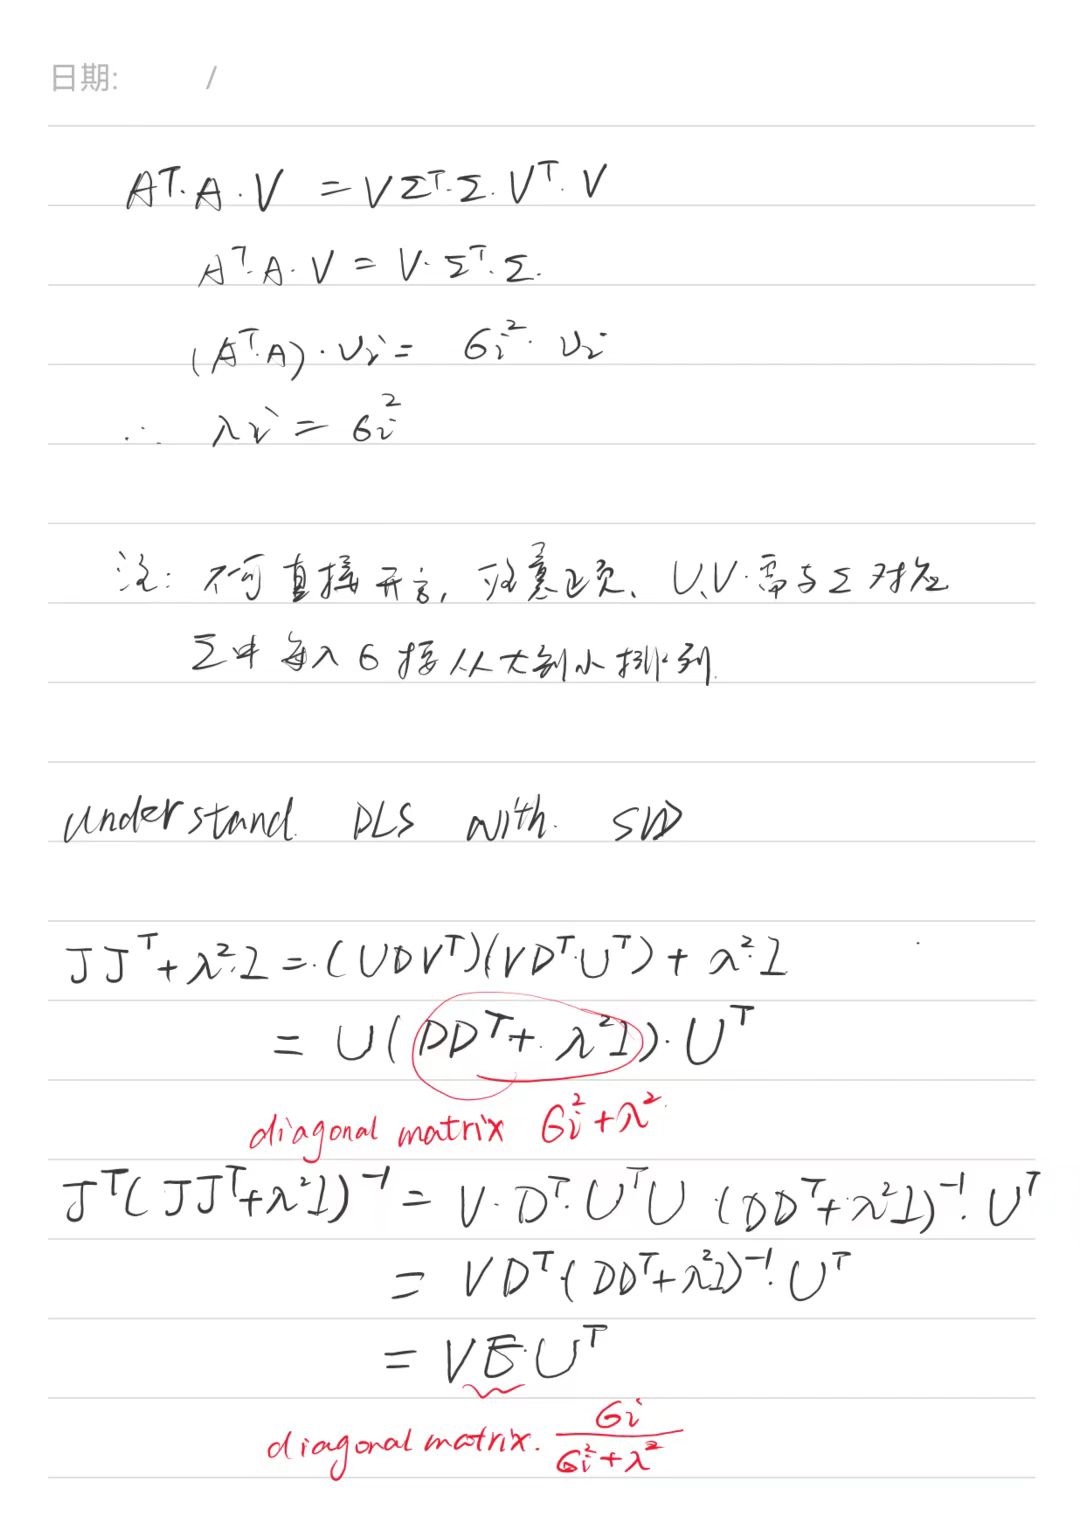 日期: /
Aᵀ·A·V = VΣᵀ·Σ·Vᵀ·V
Aᵀ·A·V = V·Σᵀ·Σ.
(Aᵀ·A)·υi = 6i²·υi
∴ λi = 6i²
注: 不可直接开方, 注意正负、U、V·需与Σ对应
Σ中每个6按从大到小排列.
understand DLS with SVD
JJᵀ+λ²·I = (UDVᵀ)(VDᵀ·Uᵀ) + λ²I
= U(DDᵀ+λ²I)·Uᵀ
diagonal matrix 6i²+λ²
Jᵀ(JJᵀ+λ²I)⁻¹ = V·Dᵀ·UᵀU (DDᵀ+λ²I)⁻¹·Uᵀ
= VDᵀ(DDᵀ+λ²I)⁻¹·Uᵀ
= VE·Uᵀ
diagonal matrix. 6i / 6i²+λ²